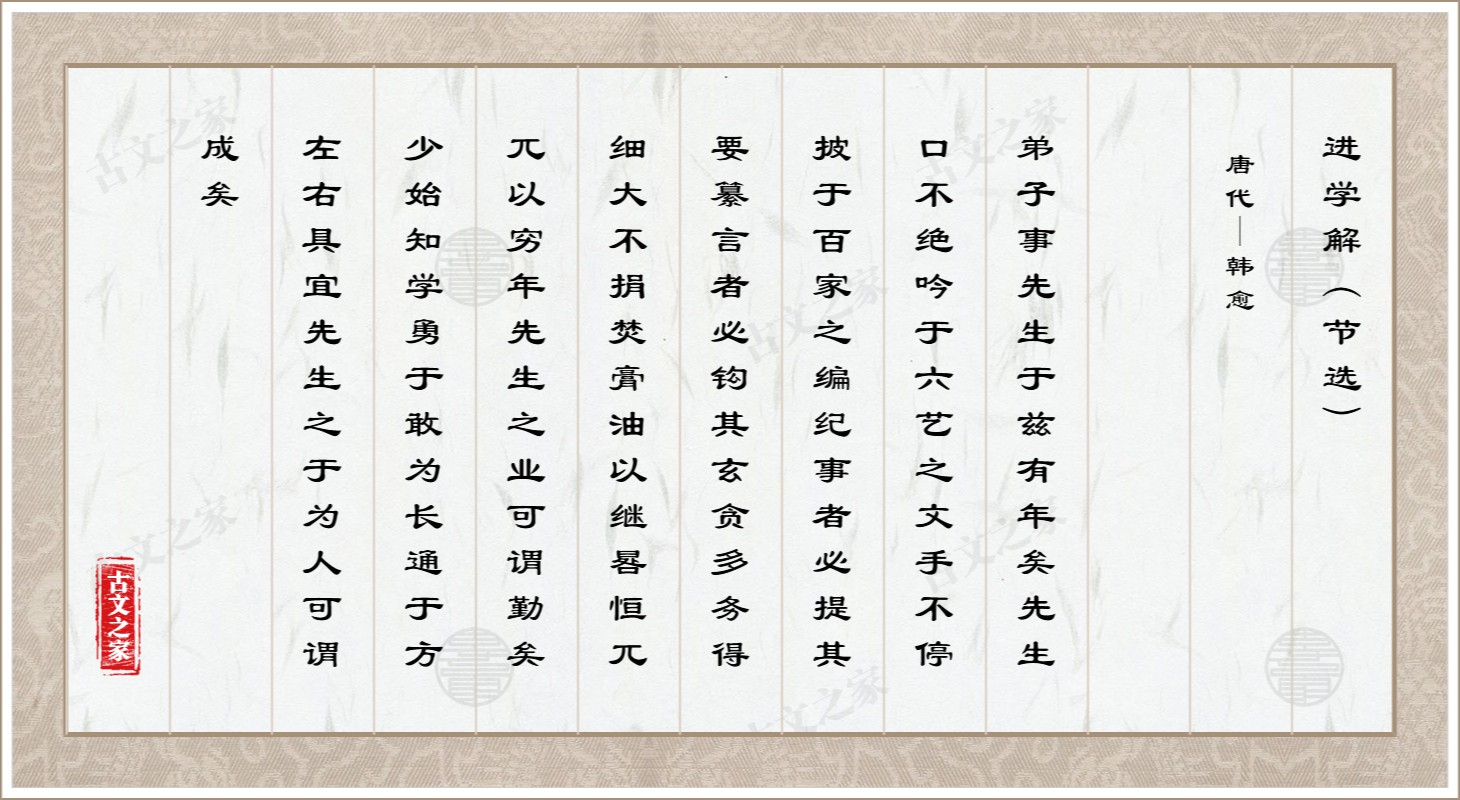 进学解（节选）
唐代—韩愈
弟子事先生于兹有年矣先生
口不绝吟于六艺之文手不停
披于百家之编纪事者必提其
要纂言者必钩其玄贪多务得
细大不捐焚膏油以继晷恒兀
兀以穷年先生之业可谓勤矣
少始知学勇于敢为长通于方
左右具宜先生之于为人可谓
成矣
古文之家
古文之家
古文之家
古文之家
古文之家
古文之家
古文之家